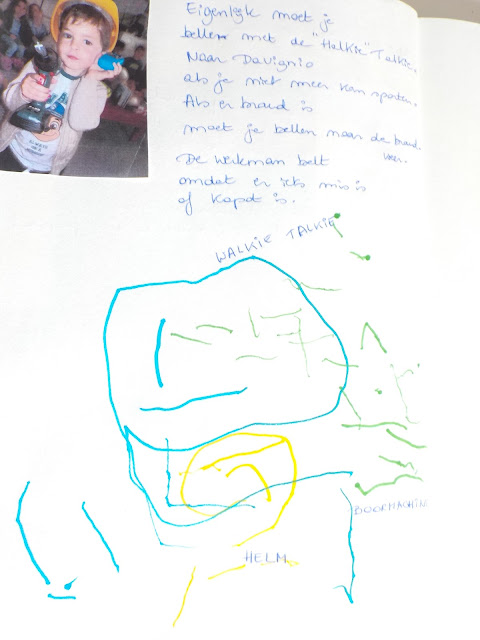 Eigenlijk moet je
bellen met de "Halkie" Talkie.
Naar Davignio
als je niet meer kan spreken.
Als er brand is
moet je bellen naar de brand
weer.
De werkman belt
omdat er iets mis is
of kapot is.
WALKIE TALKIE
BOORMACHIN
HELM